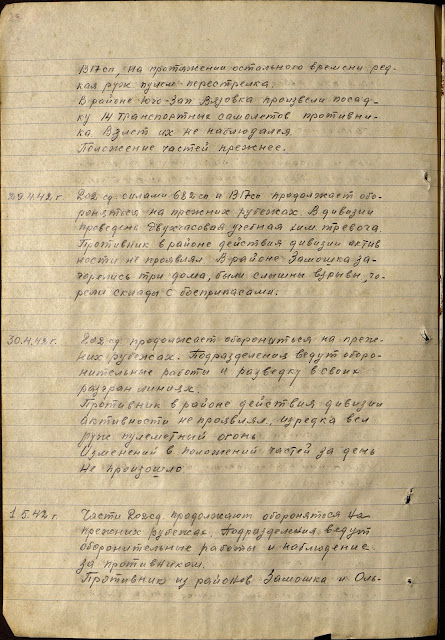 1317сп, на протяжении остального времени ред-
кая руж. пулем. перестрелка.
В районе Юго-Зап Вязовка произвели посад-
ку 14 транспортных самолетов противни-
ка Взлет их не наблюдался
Положение частей прежнее.
29.4.42 г. 202 сд. силами 682 сп и 1317сп продолжает обо-
роняться на прежних рубежах. В дивизии
проведена двухчасовая учебная хим. тревога.
Противник в районе действия дивизии актив
ности не проявлял В районе Замошка за-
горелись три дома, были слышны взрывы, го-
рели склады с боеприпасами.
30.4.42 г. 202 сд. продолжает обороняться на преж-
них рубежах. Подразделения ведут оборо-
нительные работы и разведку в своих
разгран линиях.
Противник в районе действия дивизии
активности не проявлял, изредка вел
руж. пулеметный огонь
Изменений в положений частей за день
не произошло
1.5.42 г. Части 202 сд. продолжают обороняться на
прежних рубежах. Подразделения ведут
оборонительные работы и наблюдение
за противником.
Противник из районов Замошка и Оль-